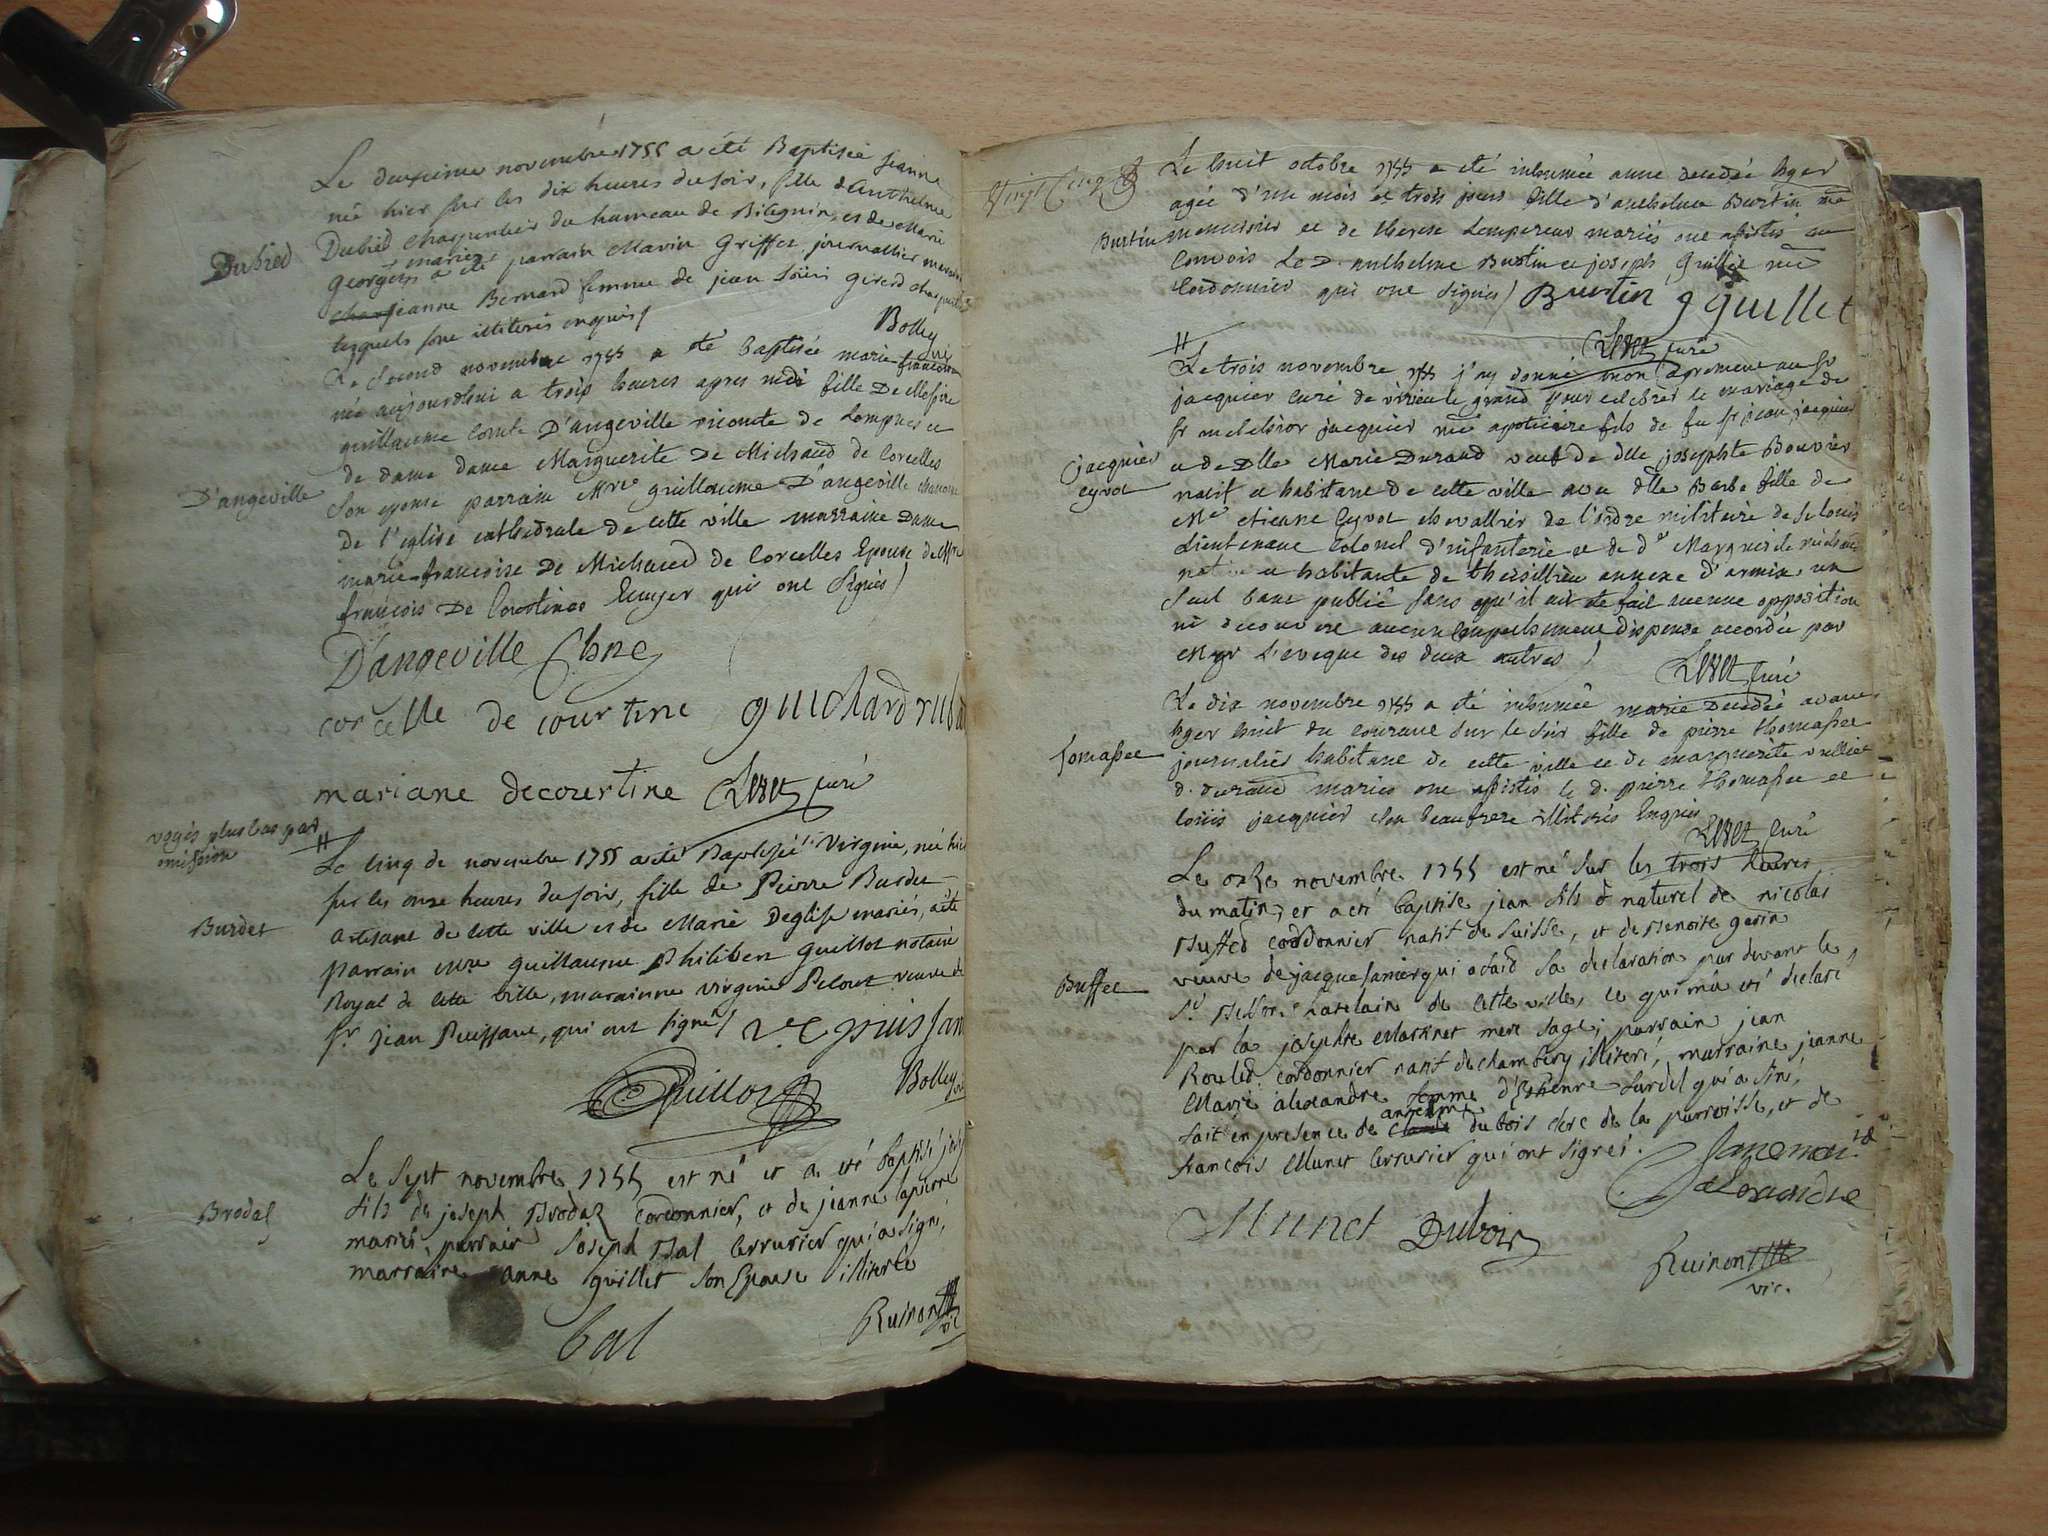 Le deuxieme novembre 1755 a été Baptisée Jeanne
née hier sur les dix heures du soir, fille d'Anthelme
Dubied
Dubied charpentier du hameau de Bilignin, et de Marie
Georges mariés a été parrain Marin Griffet journallier marraine
Jeanne Bernard femme de jean Girerd
lesquels sont illiterés enquis /
Bolley vic
Le second novembre 1755 a eté baptisée marie francoise
née aujourdhui a trois heures apres midi fille De Messire
guillaume Comte D'angeville vicomte de Lompnes et
de dame dame Marguerite De Michaud de Corcelles
D'angeville
son epouse parrain Mre guillaume D'angeville chanoine
de l'eglise cathedrale de cette ville marraine Dame
marie-francoise De Michaud de Corcelles Epouse de Mre
françois De Courtines Ecuyer qui ont signés /
D'angeville Chne
corcelle de courtine guichard
mariane decourtine curé
voyés plus bas par
omission
Le cinq de novembre 1755 a été Baptisée Virginie, née hier
sur les onze heures du soir, fille de Pierre Burdet
Burdet
artisant de cette ville et de Marie Deglise mariés, a été
parrain Mre Guillaume Philibert Guillot notaire
Royal de cette ville, marainne Virginie Pelout veuve de
Sr. Jean Puissant, qui ont signé / ve puissant
Guillot
Bolley vic
Le sept novembre 1755 est né et a eté baptisé
Brodaz
fils de joseph Brodaz cordonnier, et de jeanne lapierre
mariés, parrain Joseph Bal serrurier qui a signé,
marraine anne guillet son Epouse illiterée
bal
Ruinon vic
Vingt Cinq
Le huit octobre 1755 a eté inhumée anne decedée hyer
agée d'un mois et trois jours fille d'anthelme Burtin me
Burtin
menuisier et de therese Lempereur mariés ont assistés au
convois Le d. anthelme Burtin et joseph Guillet me
Cordonnier qui ont signés / Burtin J guillet
curé
Le trois novembre 1755 j'ay donné mon agrement au Sr
jacquier curé de virieu le grand pour celebrer le mariage de
Sr melchior jacquier me apoticaire fils de fu Sr jean jacquier
jacquier
eyvot
et de Dlle Marie Durand veuf de dlle josephte Bouvier
natif et habitant de cette ville avec dlle Barbe fille de
Mre etienne Eyvot chevallier de l'ordre militaire de St louis
Lieutenant Colonel d'infanterie et de de Marguerite
native et habitante de theisillieu annexe d'armix, un
seul banc publié sans qu'il ait été fait aucune opposition
ni decouvert aucun empechement dispense accordée par
Mgr L'eveque des deux autres /
curé
Le dix novembre 1755 a été inhumée marie decedée avant
hyer huit du courant sur le soir fille de pierre thomasset
Tomasset
journalier habitant de cette ville et de marguerite
d. durand mariés ont assistés le d. pierre thomasset et
louis jacquier son beaufrere illiterés Enquis
curé
Le onze novembre 1755 est né sur les trois heures
du matin, et a eté baptisé jean fils naturel de nicolas
Buffed cordonnier natif de Suisse, et de Benoite gerin
Buffet
veuve de jacque qui a faid sa declaration par devant le
Sr chatelain de cette ville, ce qui m'a eté declaré
par la josephte mere sage; parrain jean
Rouled cordonnier natif de chambery illiteré, marraine jeanne
Marie alexandre femme d'Etienne qui a siné,
fait en presence de anselme dubois clerc de la parroisse, et de
francois Munet serrurier qui ont signés.
alexandre
Munet Dubois
Ruinon
vic.